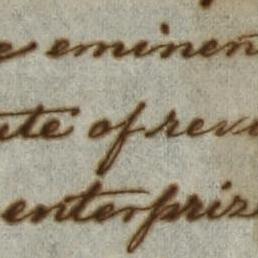 e eminen
ate of rev
enterpriz